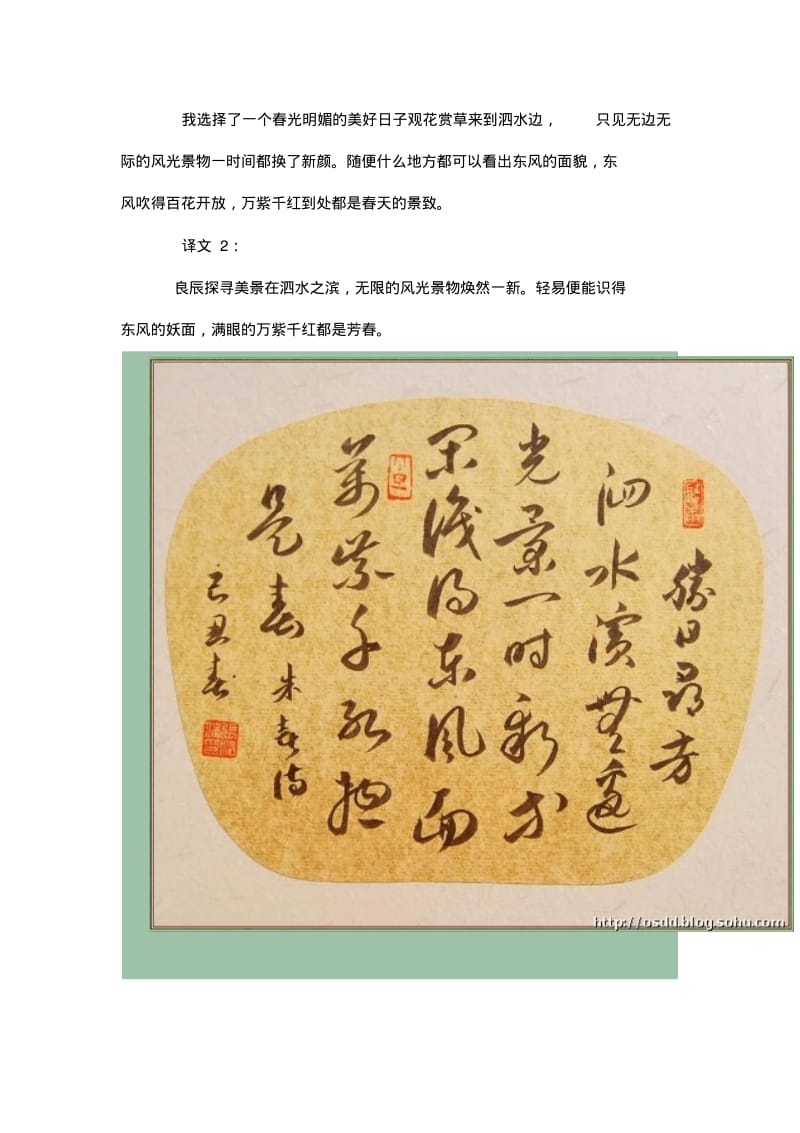 我选择了一个春光明媚的美好日子观花赏草来到泗水边，只见无边无
际的风光景物一时间都换了新颜。随便什么地方都可以看出东风的面貌，东
风吹得百花开放，万紫千红到处都是春天的景致。
译文 2：
良辰探寻美景在泗水之滨，无限的风光景物焕然一新。轻易便能识得
东风的妖面，满眼的万紫千红都是芳春。
勝日尋芳
泗水濱無邊
光景一时新等
閑識得東風面
萬紫千紅總
是春 朱熹詩
己丑春
http://osdd.blog.sohu.com